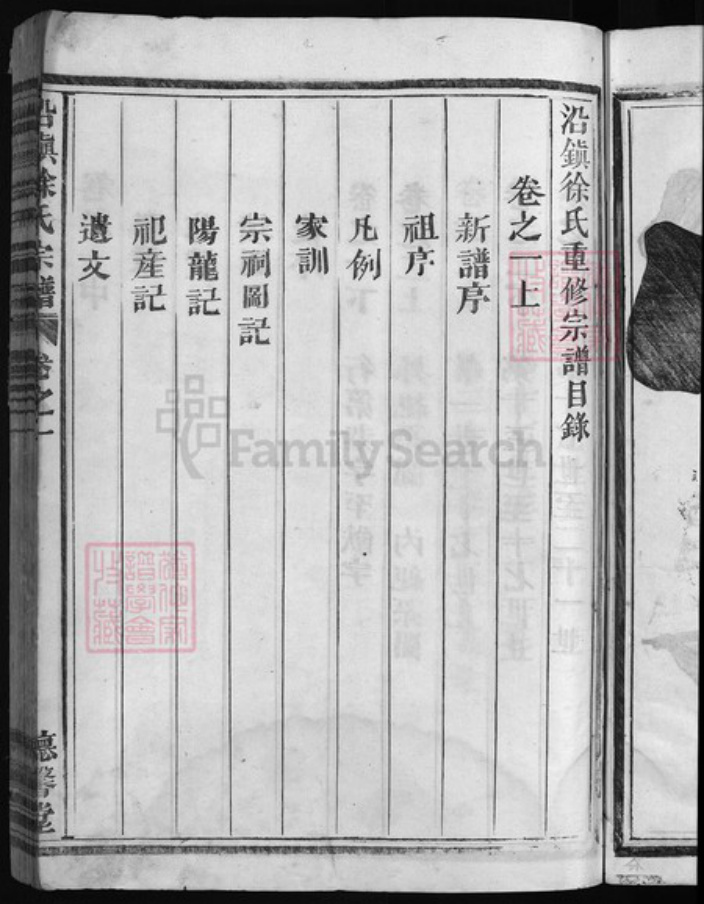 沿鎮徐氏重修宗譜目錄
卷之一上
新譜序
祖序
凡例
家訓
宗祠圖記
陽龍記
祀産記
遺文
沿鎮徐氏宗譜
卷之一
德馨堂
FamilySearch